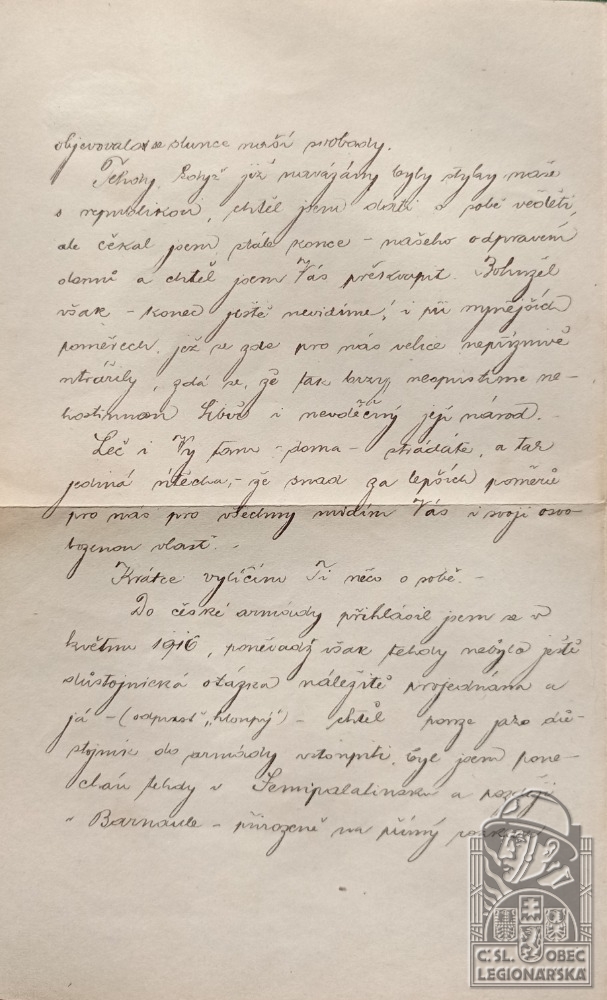 objevovalo se slunce naší svobody.
Tehdy, když již navázány byly styky naše
s republikou, chtěl jsem dáti o sobě věděti,
ale čekal jsem stále konce - našeho odpravení
domů a chtěl jsem Vás překvapit. Bohužel
však - konec ještě nevidíme, i při nynějších
poměrech, jež se zde pro nás velice nepříznivě
utvářily, zdá se, že tak brzy neopustíme ne-
hostinnou Sibiř i nevděčný její národ. -
Leč i Vy tam - doma - strádáte, a tak
jediná útěcha, - že snad za lepších poměrů
pro nás pro všechny uvidím Vás i svoji osvo-
bozenou vlast. -
Krátce vylíčím Ti něco o sobě. -
Do české armády přihlásil jsem se v
květnu 1916, poněvadž však tehdy nebyla ještě
důstojnická otázka náležitě projednána a
já - (odpusť "hloupý") - chtěl pouze jako dů-
stojník do armády vstoupiti, byl jsem pone-
chán tehdy v Semipalatinsku a později
v Barnaule - přirozeně na přímý
Č:SL. OBEC
LEGIONÁŘSKÁ